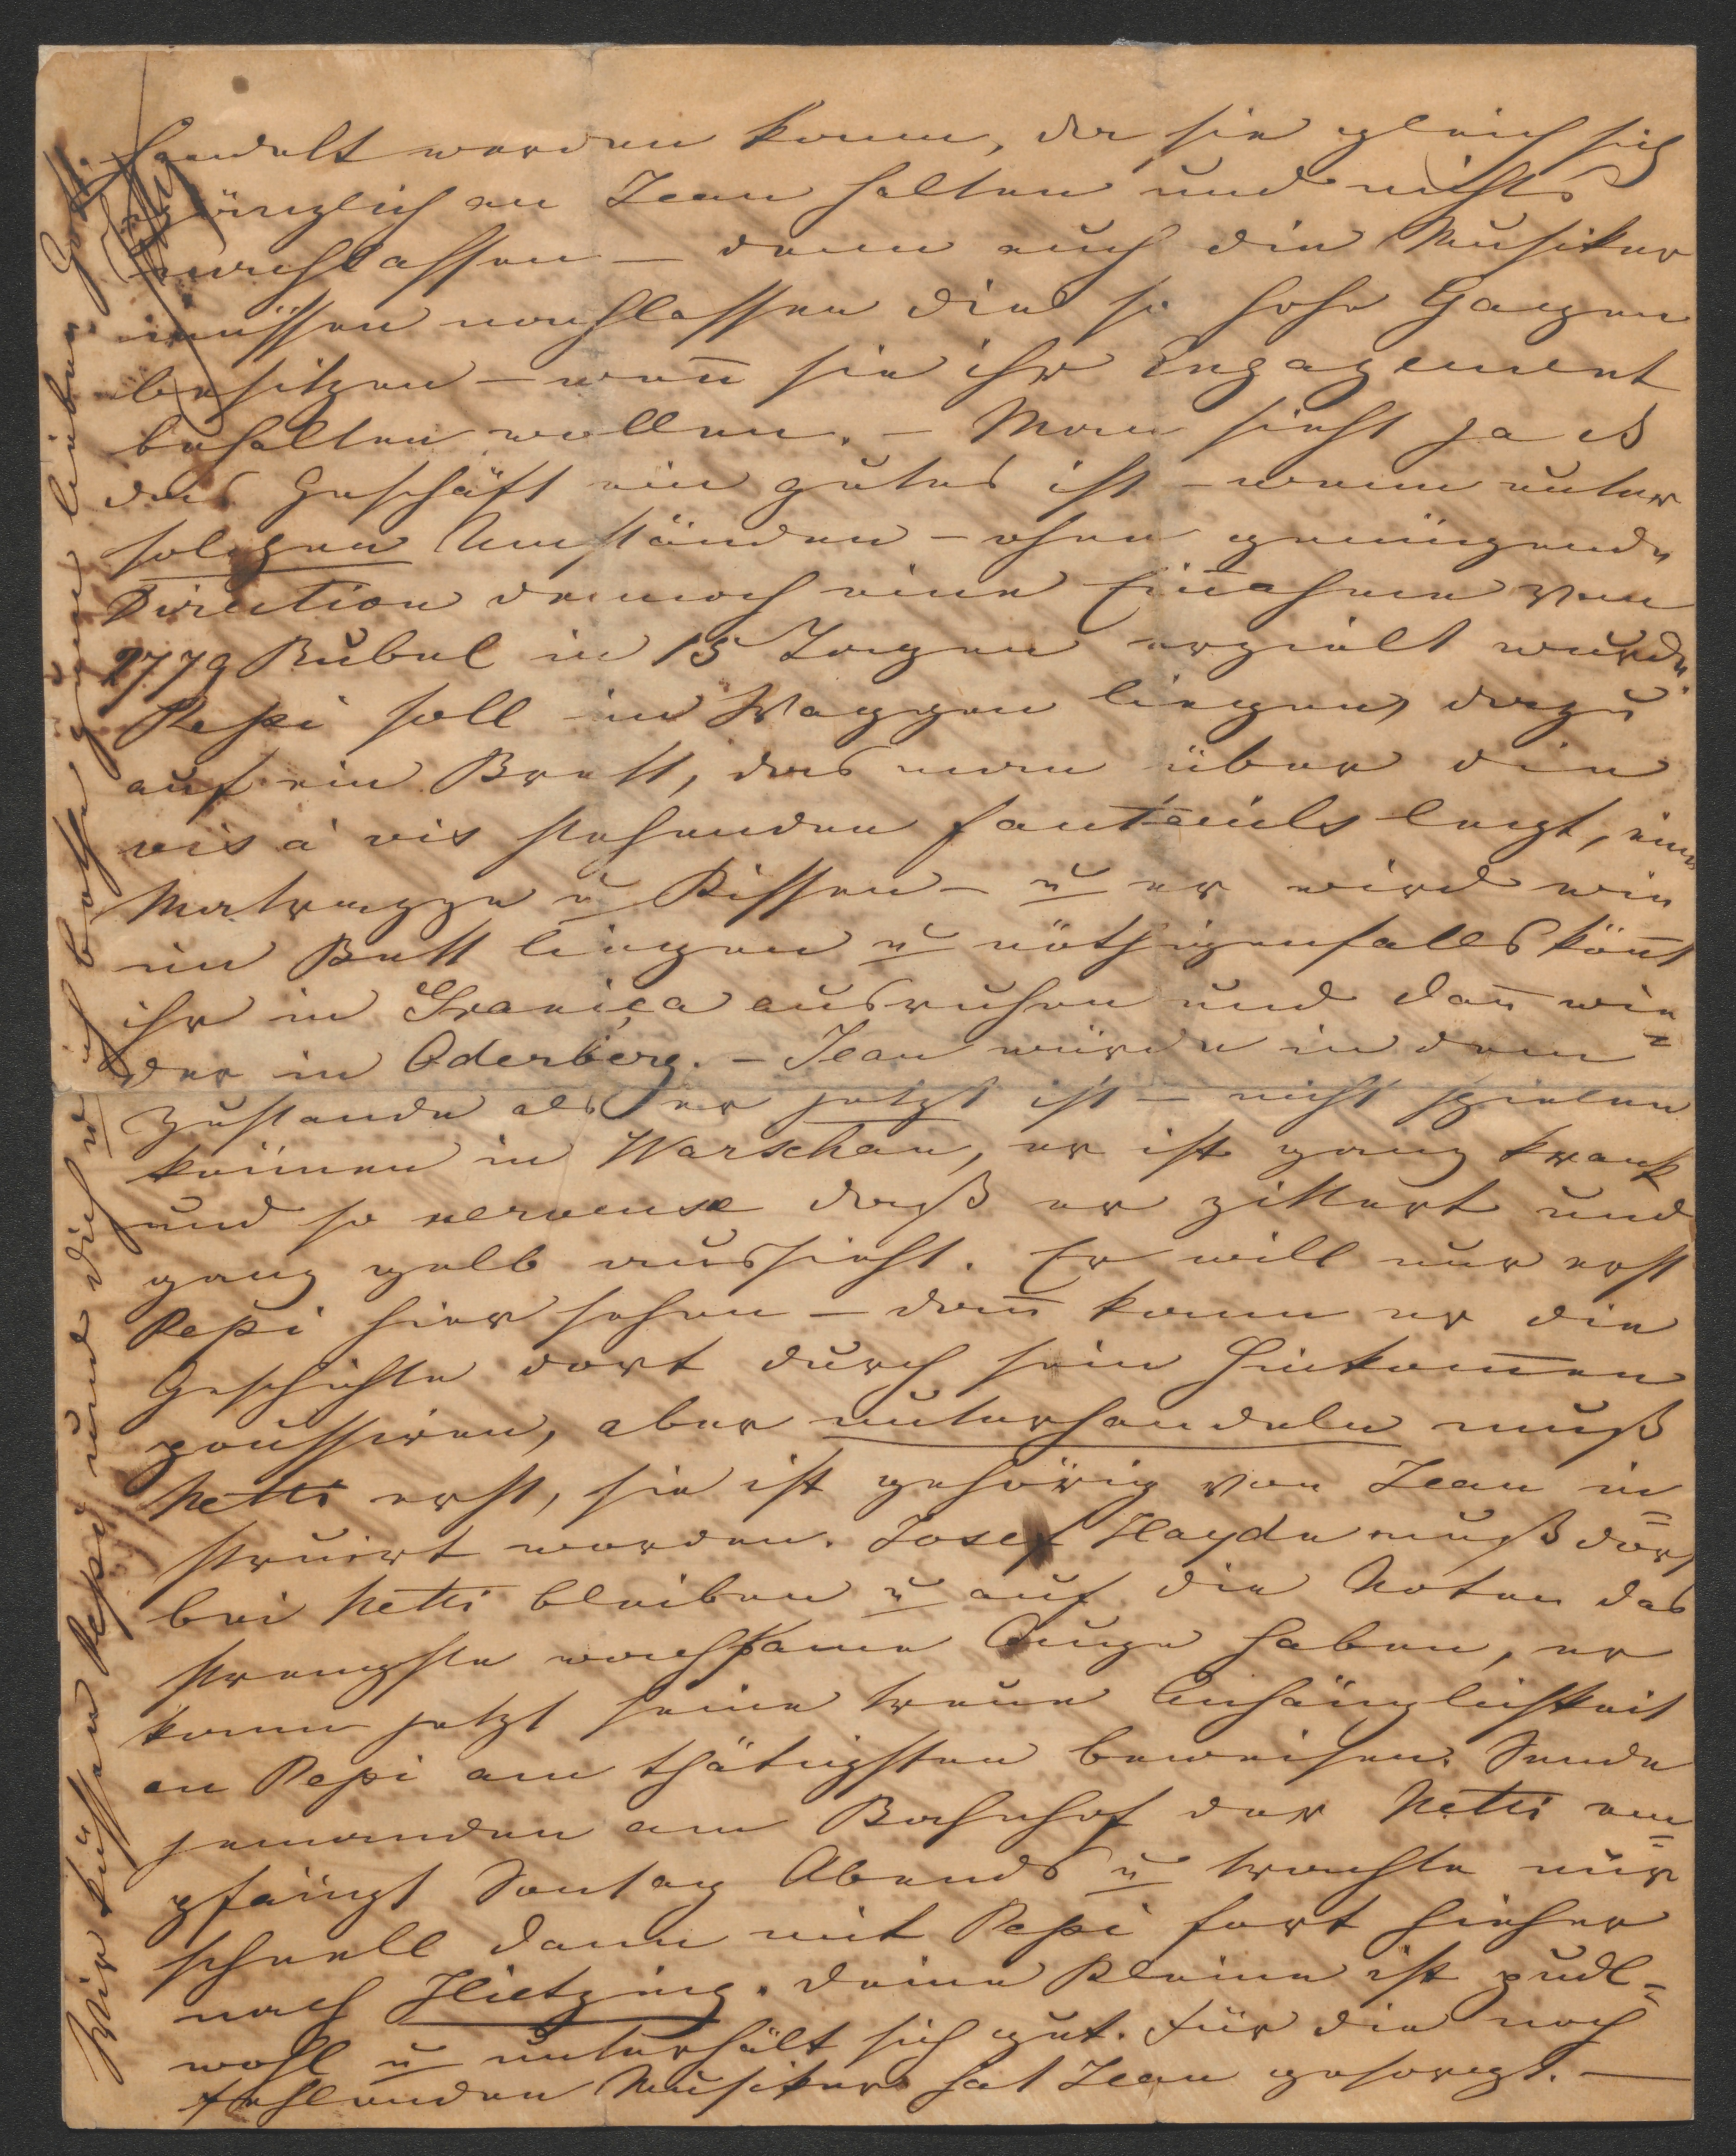 handelt werden kann, da sie gleich sich
gänzlich an Jean halten und nichts
nachlassen – denn auch die Musiker
müssen nachlassen die so hohe Gagen
besitzen – wen̄ sie ihr Engagement
behalten wollen. – Man sieht ja es
das Geschäft ein gutes ist – wenn unter
solchen Umständen – ohne genügende
Direction dennoch eine Ein̄ahme von
2779 Rubel in 15 Tagen erzielt wurde.
Pepi soll im Waggon liegen, dazu
auf ein Brett, das man über die
vis à vis stehenden fauteuils legt, eine
Matrazze u Kissen – u er wird wie
im Bett liegen u nöthigenfalls kön̄t
ihr in Granica ausruhen und dan̄ wie=
der in Oderberg. – Jean würde in dem
Zustande als er jetzt ist – nicht spielen
können in Warschau, er ist ganz krank
und so nerveuse daß er zittert und
ganz gelb aussieht. Er will nur erst
Pepi hier sehen – dan̄ kann er die
Geschichte dort durch sein Hinkom̄en
poussiren, aber unterhandeln muß
Netti erst, sie ist gehörig von Jean in=
struirt worden. Josef Haydn muß dort
bei Netti bleiben u auf die Noten das
strengste wachsame Auge haben, er
kann jetzt seine treue Anhänglichkeit
an Pepi am thätigsten beweisen. Sende
jemanden am Bahnhof der Netti em=
pfängt Sontag Abends u trachte nur
schnell dann mit Pepi fort hieher
nach Hietzing. Deine Kleine ist pudl=
wohl u unterhält sich gut. Für die noch
fehlenden Musiker hat Jean gesorgt. –
Wir küssen Pepi und dich u ich hoffe zum lieben Gott.